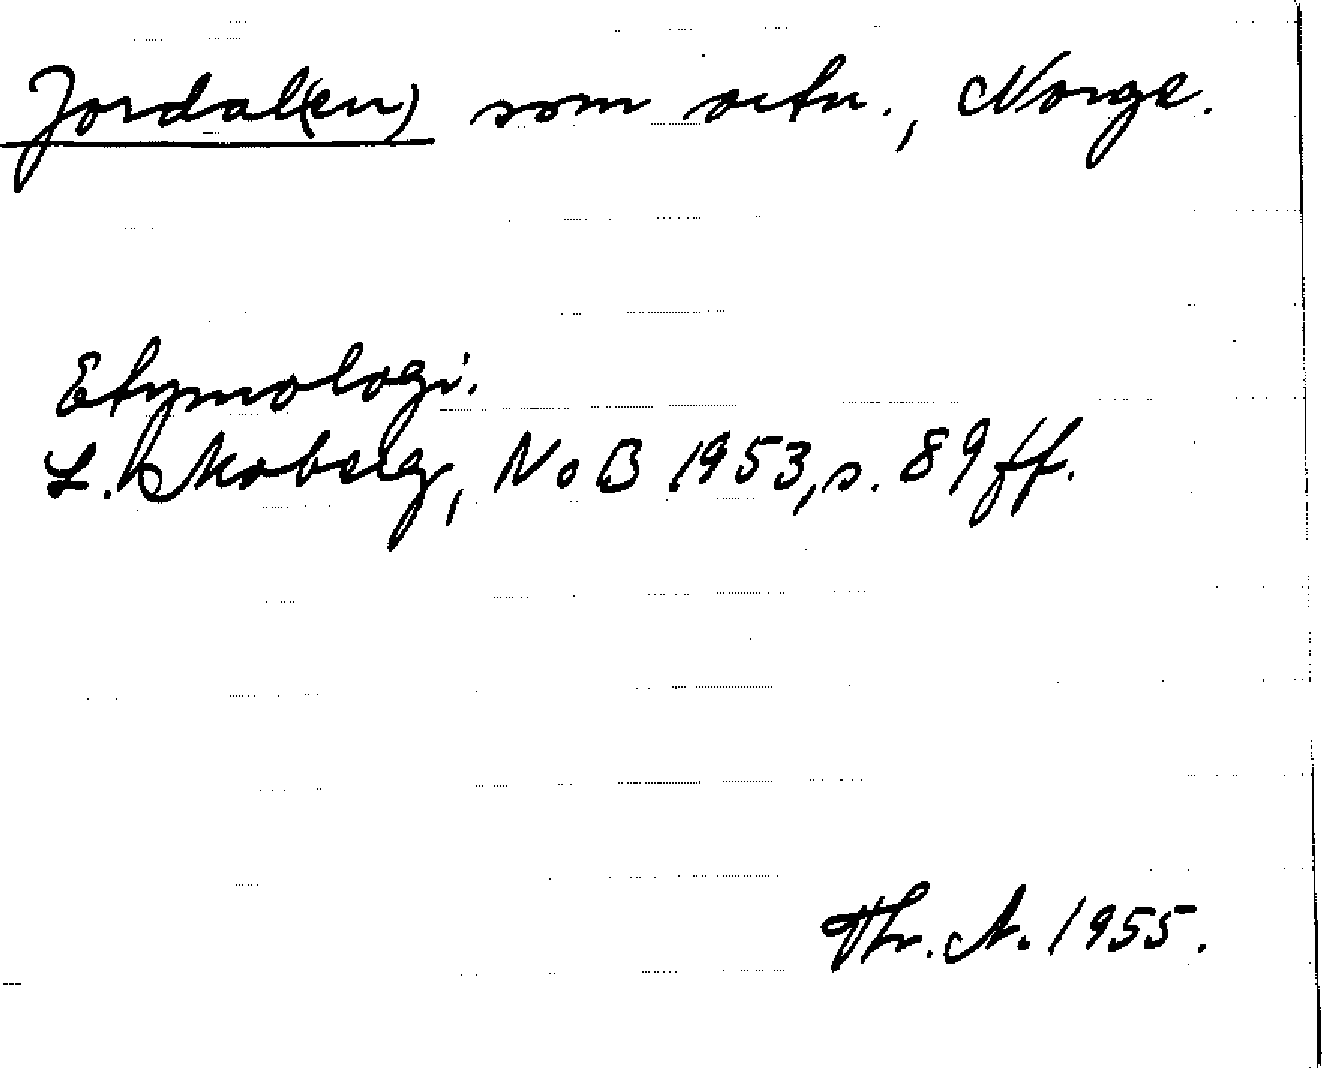 Jordal(en) som ortn., Norge.
Etymologi.
L. Moberg, NoB 1953, s. 89 ff.
Thr. A. 1955.